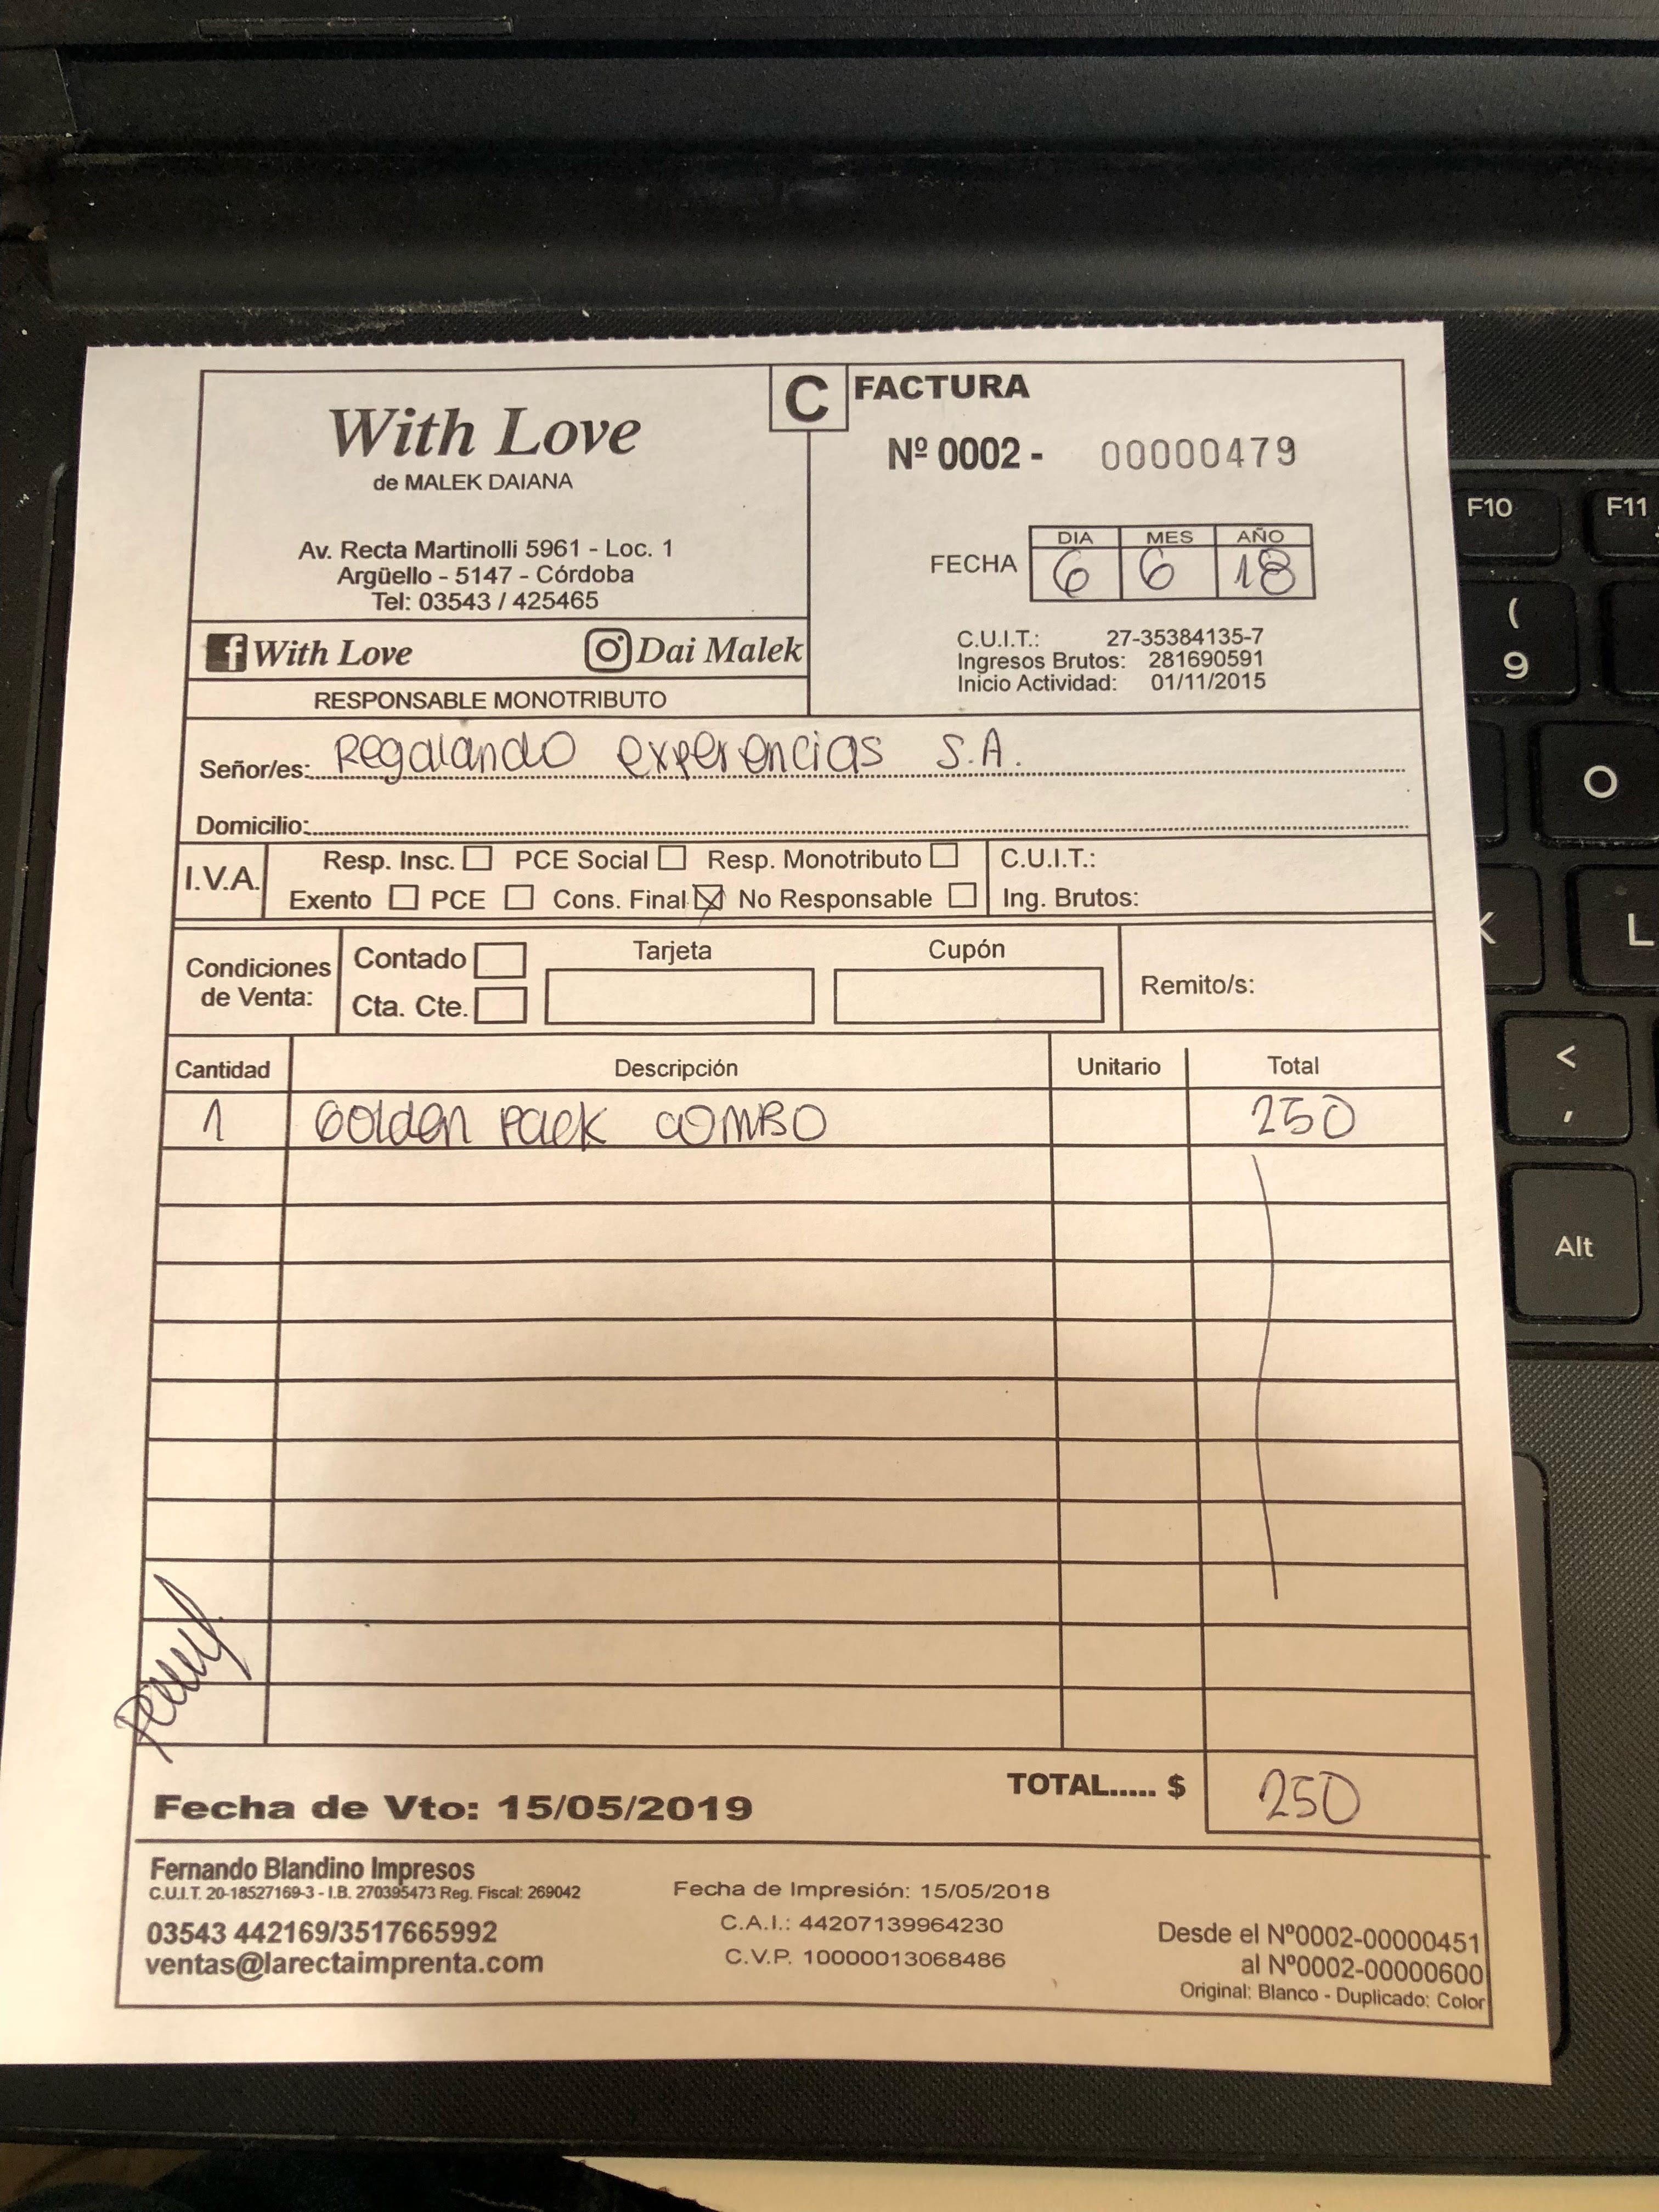 With Love
de MALEK DAIANA
Av. Recta Martinolli 5961 - Loc. 1
Argüello - 5147 - Córdoba
Tel: 03543 / 425465
f With Love Dai Malek
RESPONSABLE MONOTRIBUTO
C FACTURA
Nº 0002 - 00000479
DIA MES AÑO
FECHA 6 6 18
C.U.I.T.: 27-35384135-7
Ingresos Brutos: 281690591
Inicio Actividad: 01/11/2015
Señor/es: Regalando experencias S.A.
Domicilio:
I.V.A. Resp. Insc. PCE Social Resp. Monotributo C.U.I.T.:
Exento PCE Cons. Final No Responsable Ing. Brutos:
Condiciones de Venta: Contado Tarjeta Cupón Remito/s:
Cta. Cte.
Cantidad Descripción Unitario Total
1 Golden Pack COMBO 250
TOTAL..... $ 250
Fecha de Vto: 15/05/2019
Fernando Blandino Impresos
C.U.I.T. 20-18527169-3 - I.B. 270395473 Reg. Fiscal: 269042
03543 442169/3517665992
ventas@larectaimprenta.com
Fecha de Impresión: 15/05/2018
C.A.I.: 44207139964230
C.V.P. 10000013068486
Desde el Nº0002-00000451
al Nº0002-00000600
Original: Blanco - Duplicado: Color
F10 F11
(
9
O
K L
<
,
Alt